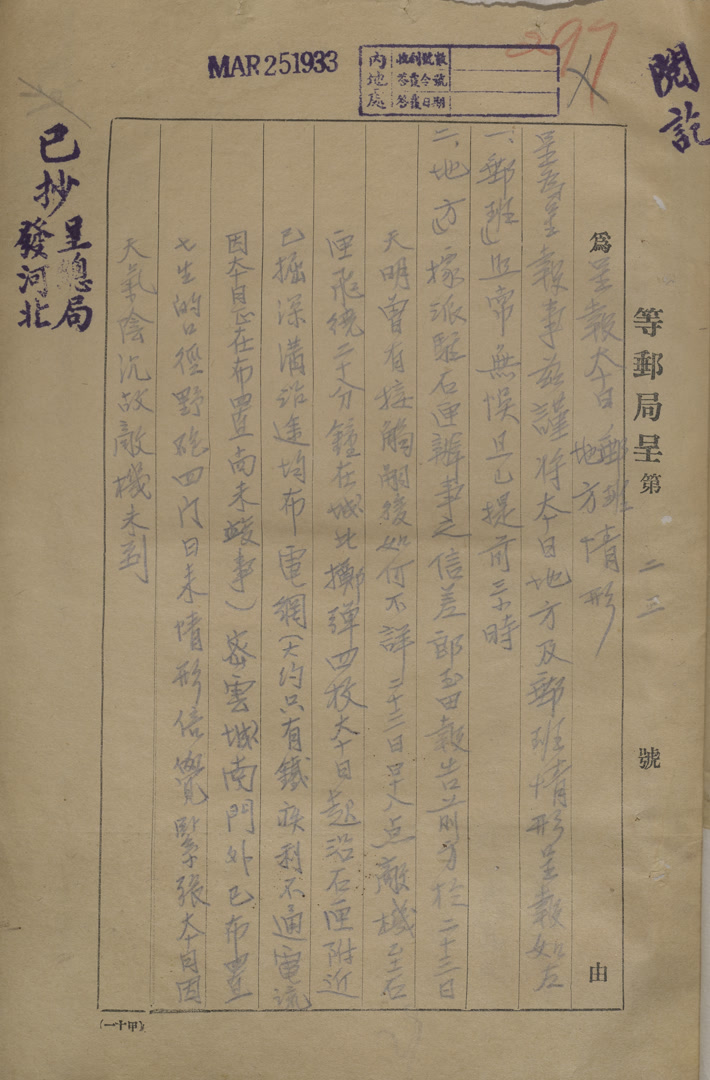 MAR 25 1933
內地處
收到號數
答覆令號
答覆日期
297
閱訖
等郵局呈第 二三 號
為呈報本日郵班地方情形 由
呈為呈報事茲謹將本日地方及郵班情形呈報如左
一、郵班 照常無悞且已提前三小時
二、地方 據派駐石匣辦事之信差郎 報告前方於二十三日
天明曾有接觸嗣後如何不詳二十三日早八点敵機至石
匣飛繞二十分鐘在城北擲彈四枚本日起沿石匣附近
已掘深溝沿途均布電網(大約只有鐵 利不通電流
因本日正在布置尚未竣事)密雲城南門外已布置
七生的口徑野砲四門日來情形倍覺緊張本日因
天氣陰沉故敵機未到
(一十甲)
已抄
呈總局
發河北